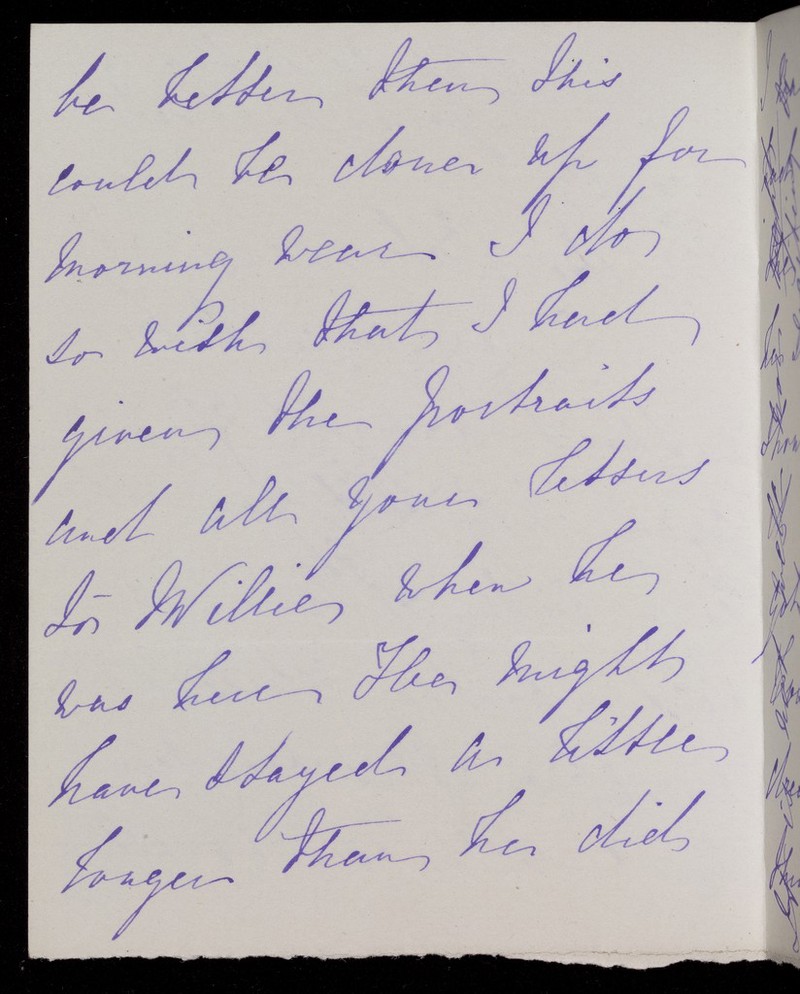 be better then this
could be done up for
morning wear I do
so wish that I had
given the portraits
and all your letters
to Willie when he
was here He might
have stayed a little
longer than he did